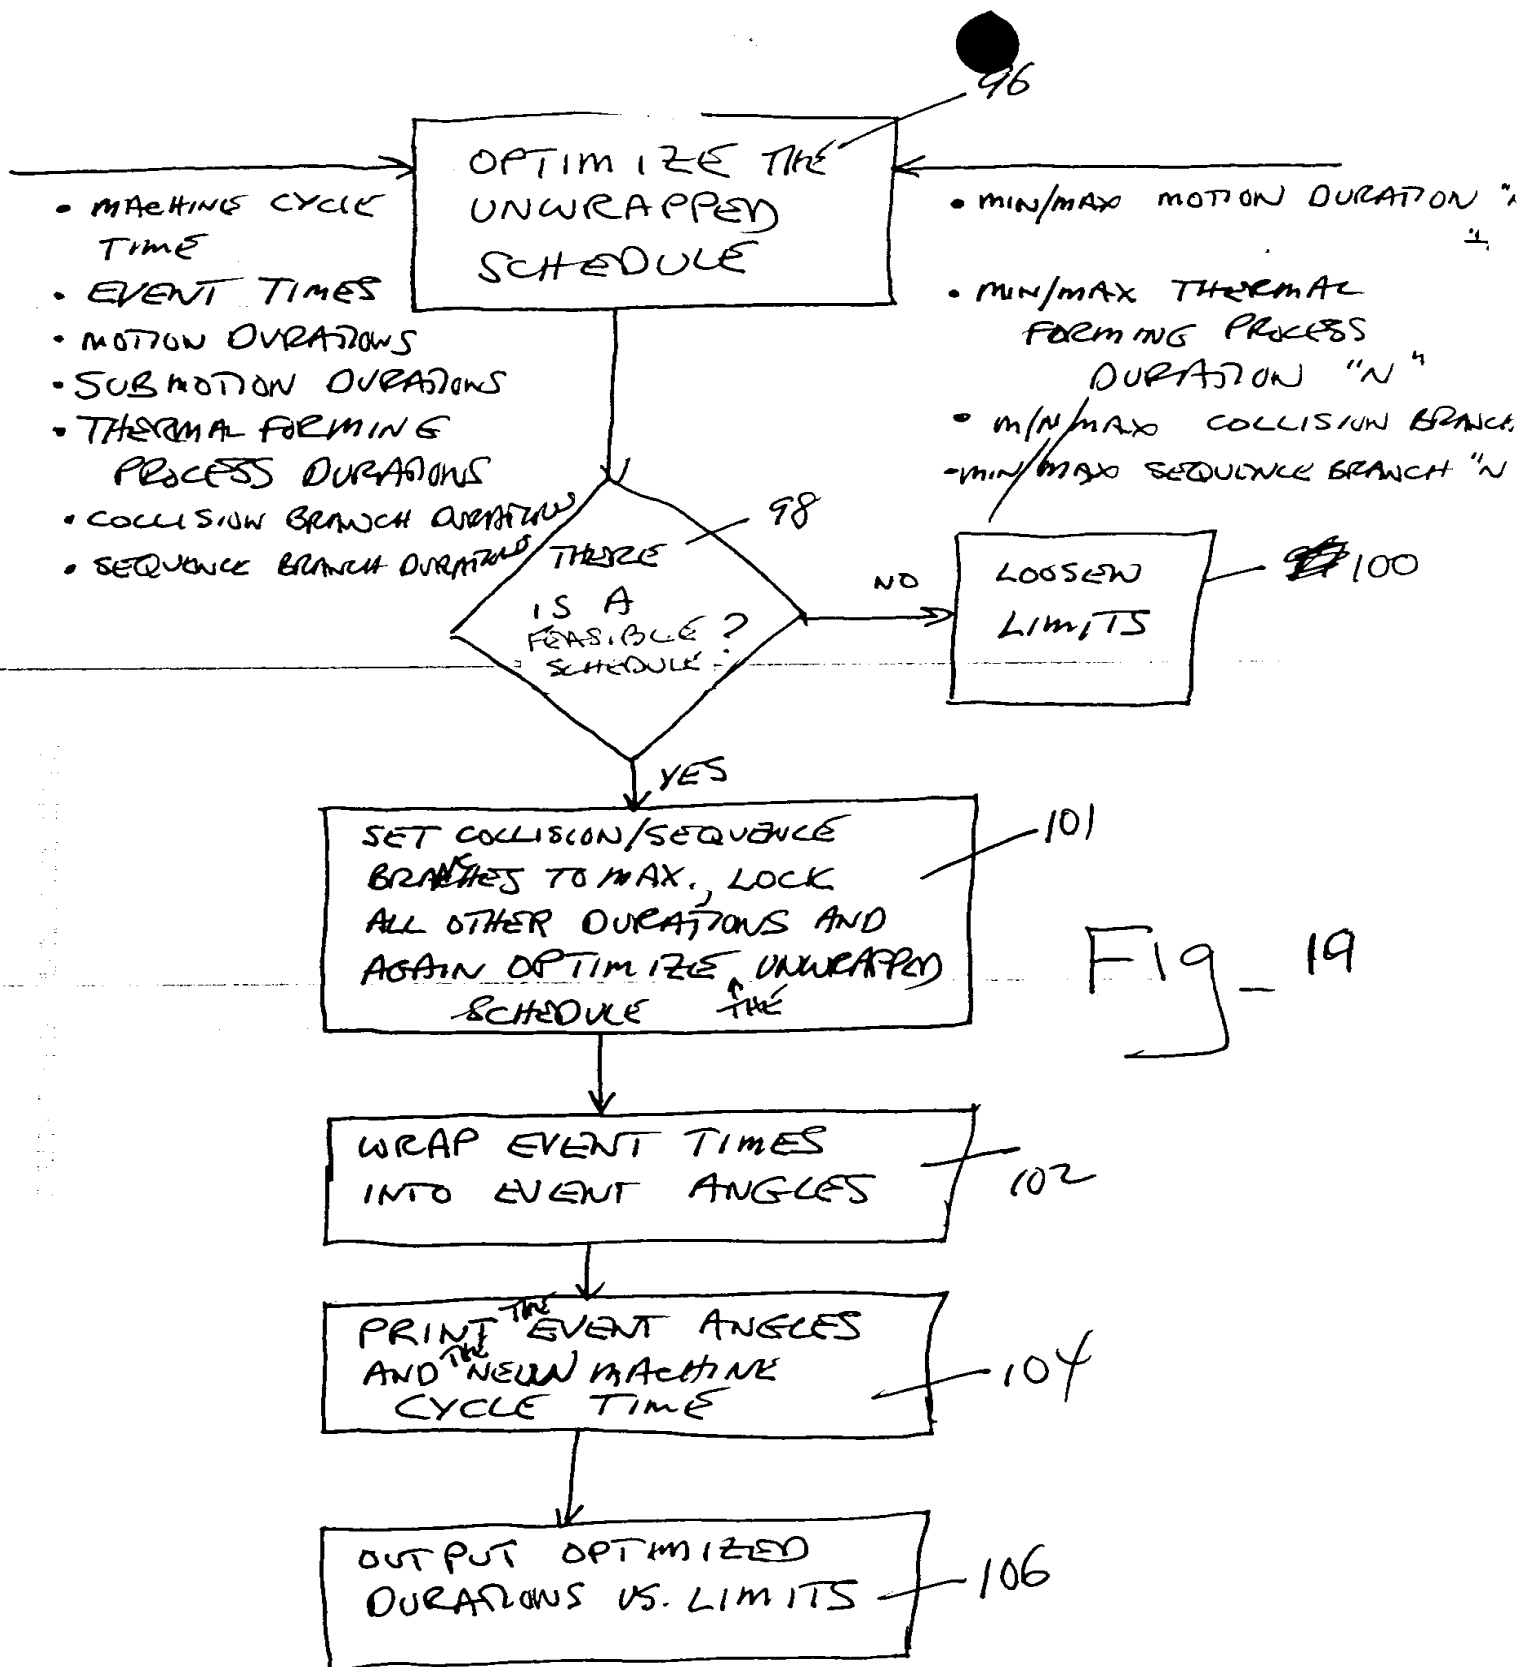 96
OPTIMIZE THE
UNWRAPPED
SCHEDULE
• MACHINE CYCLE
TIME
• EVENT TIMES
• MOTION DURATIONS
• SUBMOTION DURATIONS
• THERMAL FORMING
PROCESS DURATIONS
• COLLISION BRANCH DURATIONS
• SEQUENCE BRANCH DURATIONS
• MIN/MAX MOTION DURATION
• MIN/MAX THERMAL
FORMING PROCESS
DURATION "N"
• MIN/MAX COLLISION BRANCH
-MIN/MAX SEQUENCE BRANCH "N
98
THERE
IS A
FEASIBLE
SCHEDULE ?
NO
LOOSEN
LIMITS
100
YES
SET COLLISION/SEQUENCE
BRANCHES TO MAX., LOCK
ALL OTHER DURATIONS AND
AGAIN OPTIMIZE THE UNWRAPPED
SCHEDULE
101
Fig_19
WRAP EVENT TIMES
INTO EVENT ANGLES
102
PRINT THE EVENT ANGLES
AND THE NEW MACHINE
CYCLE TIME
104
OUTPUT OPTIMIZED
DURATIONS VS. LIMITS
106